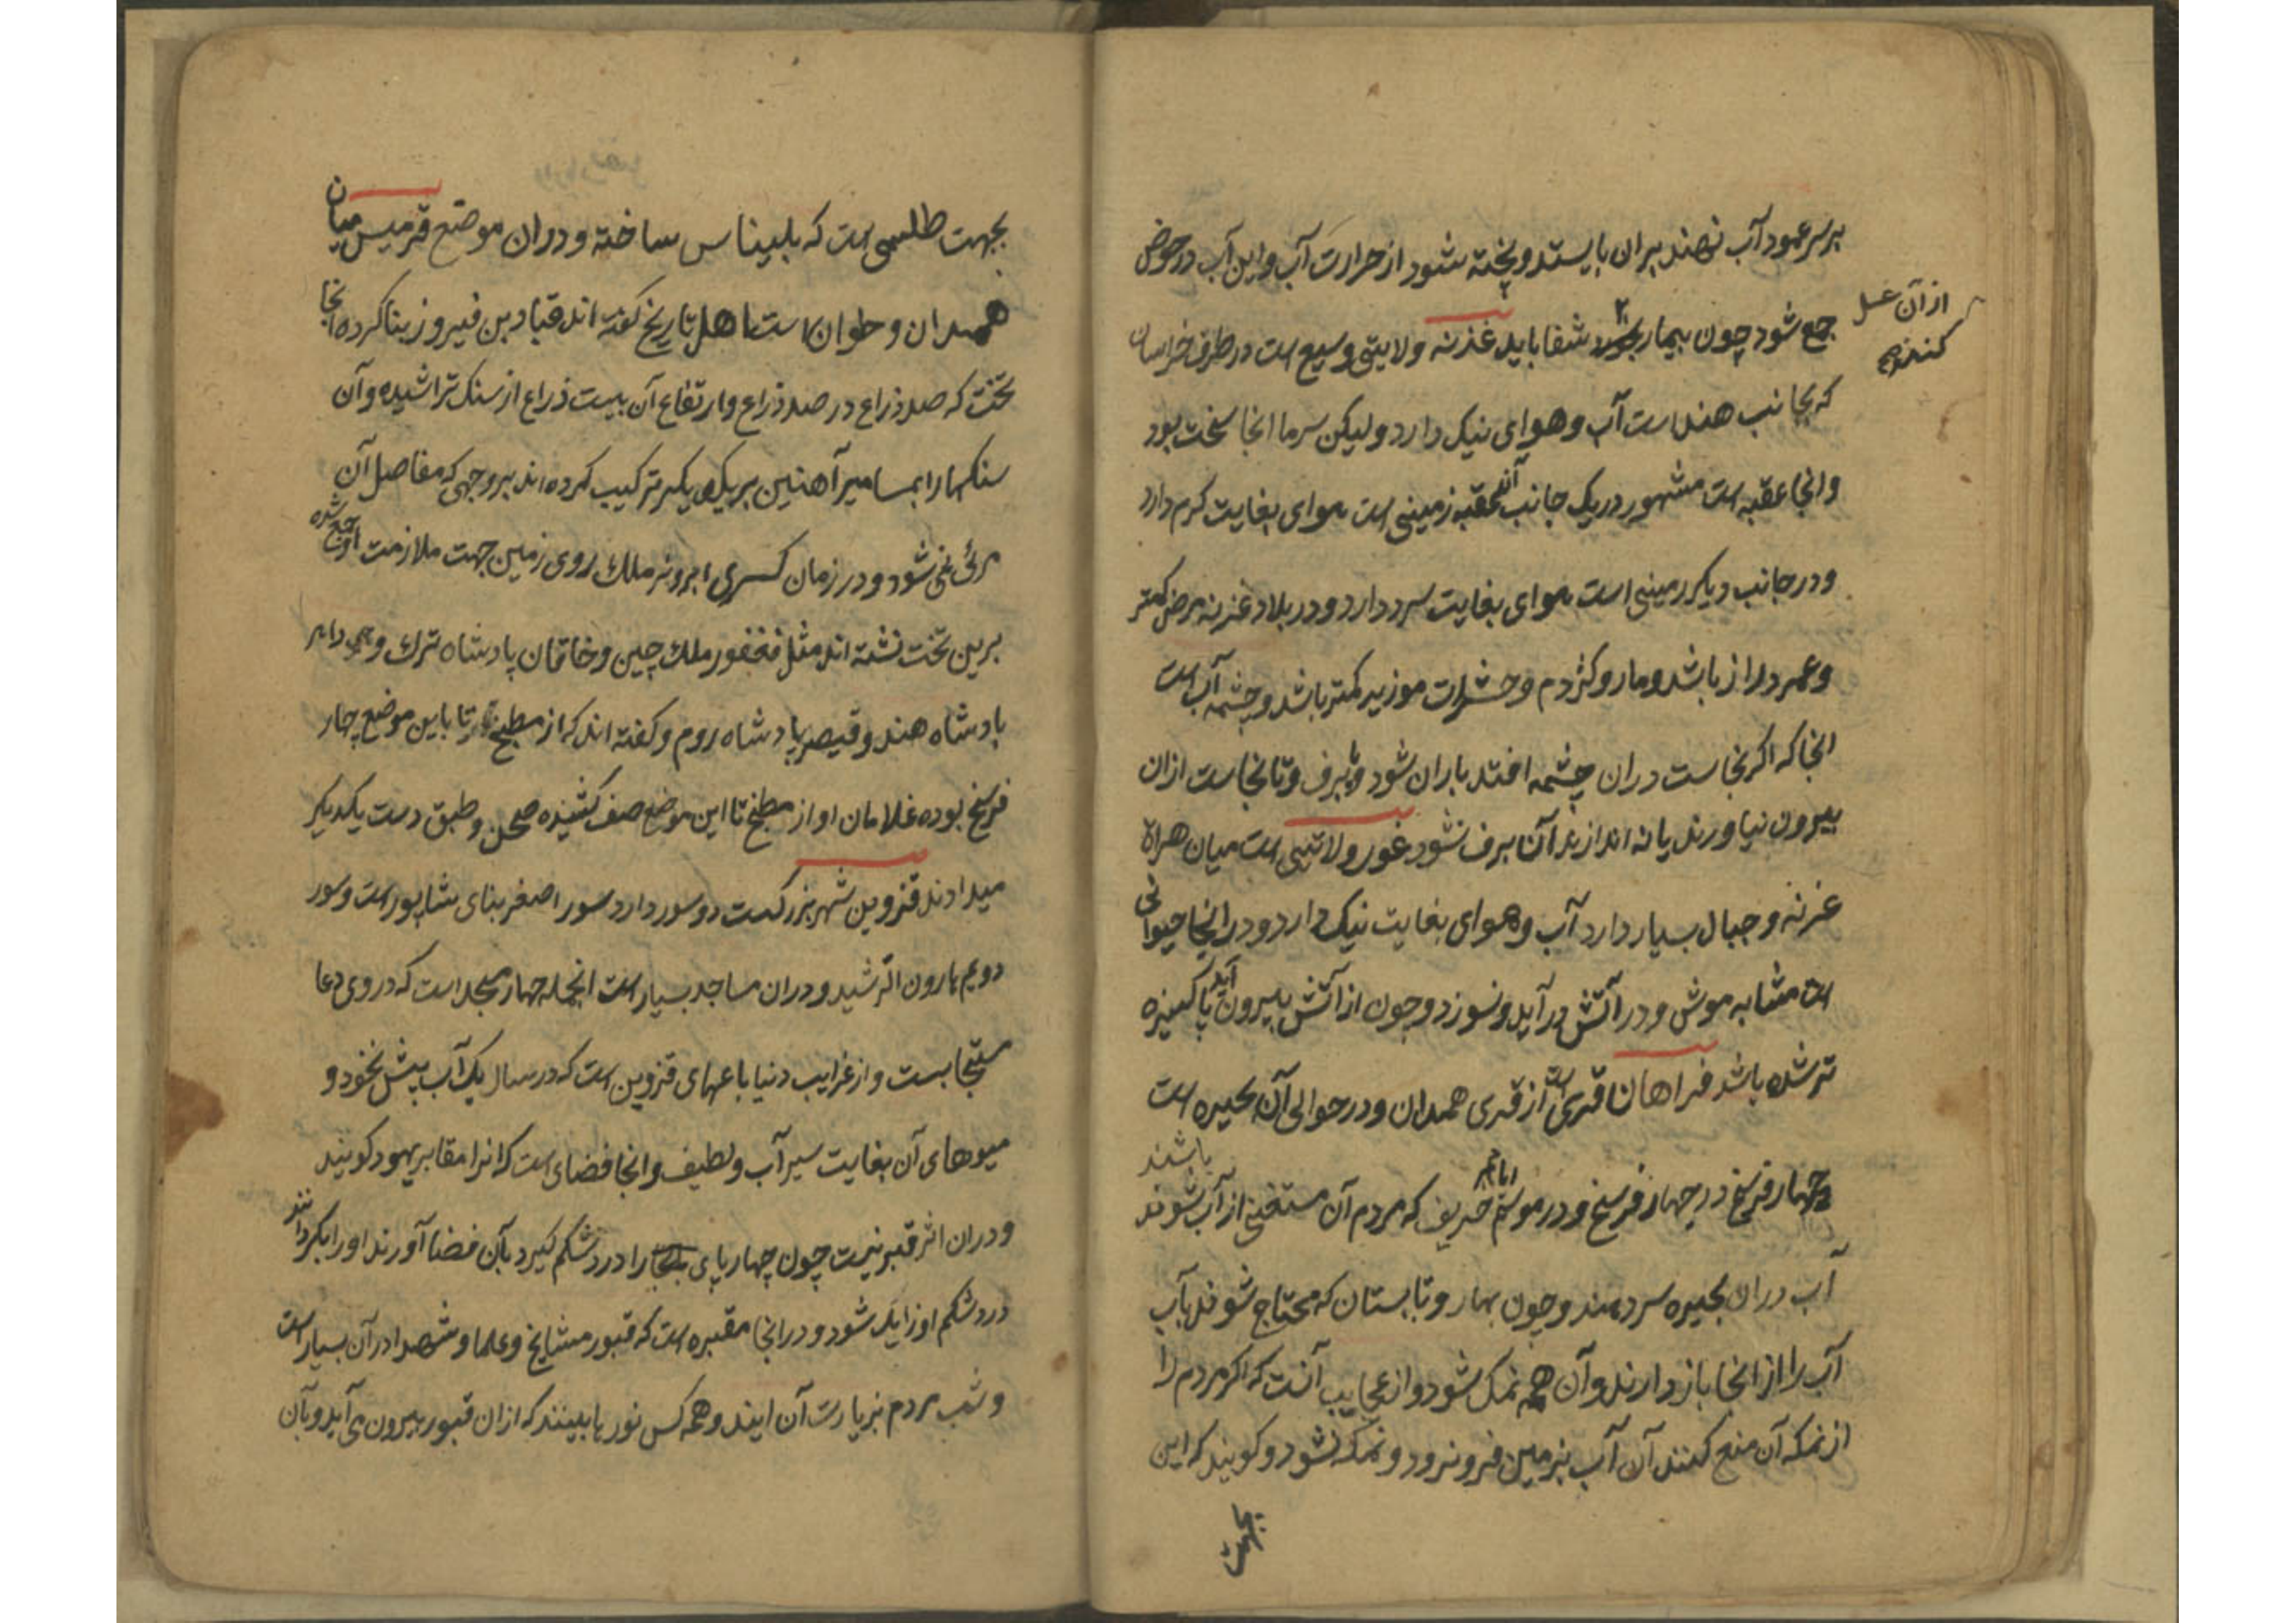 بر سر عمود آب نهند بران بایستد و پخته شود از حرارت آب و این آب در حوض
جمع شود چون بیمار بخورد شفا یابد غزنه ولایتی وسیع است در طرف خراسان
از آن غسل
کنند صح
که بجانب هند است آب و هوای نیک دارد ولیکن سرما انجا سخت بود
و انجا عقبه است مشهور در یک جانب آن عقبه زمینی است هوای بغایت کرم دارد
و در جانب دیکر زمینی است هوای بغایت سرد دارد و در بلاد غزنه مرض کمتر
و عمر دراز باشد و مار و کژدم و حشرات موزیه کمتر باشد و چشمه آب است
انجا که اکر نجاست دران چشمه افتد باران شود و برف و تا نجاست ازان
بیرون نیاورند یا نه اندازند آن برف نشود غور ولایتی است میان هراة
غزنه و جبال بسیار دارد آب و هوای بغایت نیک دارد و در انجا حیوانی
است مشابه موش و در آتش در آید و نسوزد و چون از آتش بیرون آید پاکیزه
تر شده باشد فراهان قری است از قری همدان و در حوالی آن بحیره است
چهار فرسخ در چهار فرسخ و در موسم ایام خریف که مردم آن مستغنی از آب شوند باشند
آب دران بحیره سر دهند و چون بهار و تابستان که محتاج شوند بآب
آب را از انجا باز دارند و آن همه نمک شود و از عجایب آنست که اکر مردم را
از نمکه آن منع کنند آن آب بزمین فرو نرود و نمک نشود و کویند که این
بجهت
بجهت طلسمی است که بلیناس ساخته و دران موضع قرمیس میان
همدان و حلوان است اهل تاریخ کفته اند قباد بن فیروز بنا کرده انجا
تخت که صد ذراع در صد ذراع و ارتفاع آن بیست ذراع از سنک تراشیده و آن
سنکها را بمسامیر آهنین بر یکدیکر ترکیب کرده اند بر وجهی که مفاصل آن
مرئی نمی شود و در زمان کسری ابرویز ملک روی زمین جهت ملازمت او جمع شده
برین تخت نشسته اند مثل فغفور ملک چین و خاقان پادشاه ترک و داهر
پادشاه هند و قیصر پادشاه روم و کفته اند که از مطبخ تا باین موضع چهار
فرسخ بوده غلامان او از مطبخ تا این موضع صف کشیده صحن و طبق دست یکدیکر
میدادند قزوین شهر بزرکست دو سور دارد سور اصغر بنای شاپور است و سور
دویم هارون الرشید و دران مساجد بسیار است انجمله چهار مسجد است که در وی دعا
مستجابست و از غرایب دنیا باغهای قزوین است که در سال یک آب بیش نخورد و
میوهای آن بغایت سیر آب و لطیف و انجا فضای است که انرا مقابر یهود کویند
و دران اثر قبر نیست چون چهارپای را درد شکم کیرد بآن فضا آورند او را بکردانند
درد شکم او زایل شود و در انجا مقبره است که قبور مشایخ و علما و شهدا در آن بسیار است
و شب مردم بزیارت آن ایند و همه کس نور یا ببینند که ازان قبور بیرون می آید و بآن